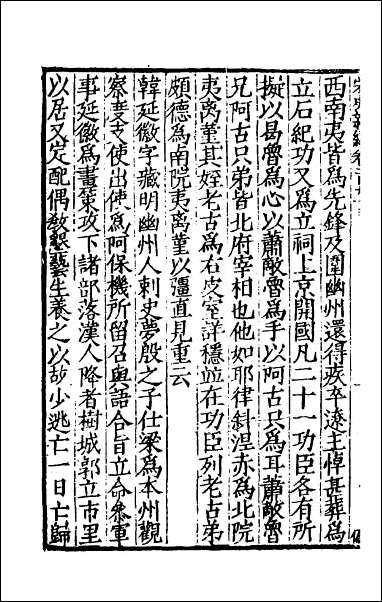 西南夷皆為先鋒及圍幽州還得疾卒遼主悼甚葬為
立石紀功又為立祠上京開國凡二十一功臣各有所
擬以曷魯為心以蕭敵魯為手以阿古只為耳蕭敵魯
兄阿古只弟皆北府宰相也他如耶律斜涅赤為北院
夷离堇其姪老古為右皮室詳穩竝在功臣列老古弟
頗德為南院夷离堇以彊直見重云
韓延徽字藏明幽州人刺史夢殷之子仕梁為本州觀
察度支使出使為阿保機所留召與語合旨立命叅軍
事延徽為畫策攻下諸部落漢人降者樹城郭立市里
以居又定配偶敎墾藝生養之以故少逃亡一日亡歸